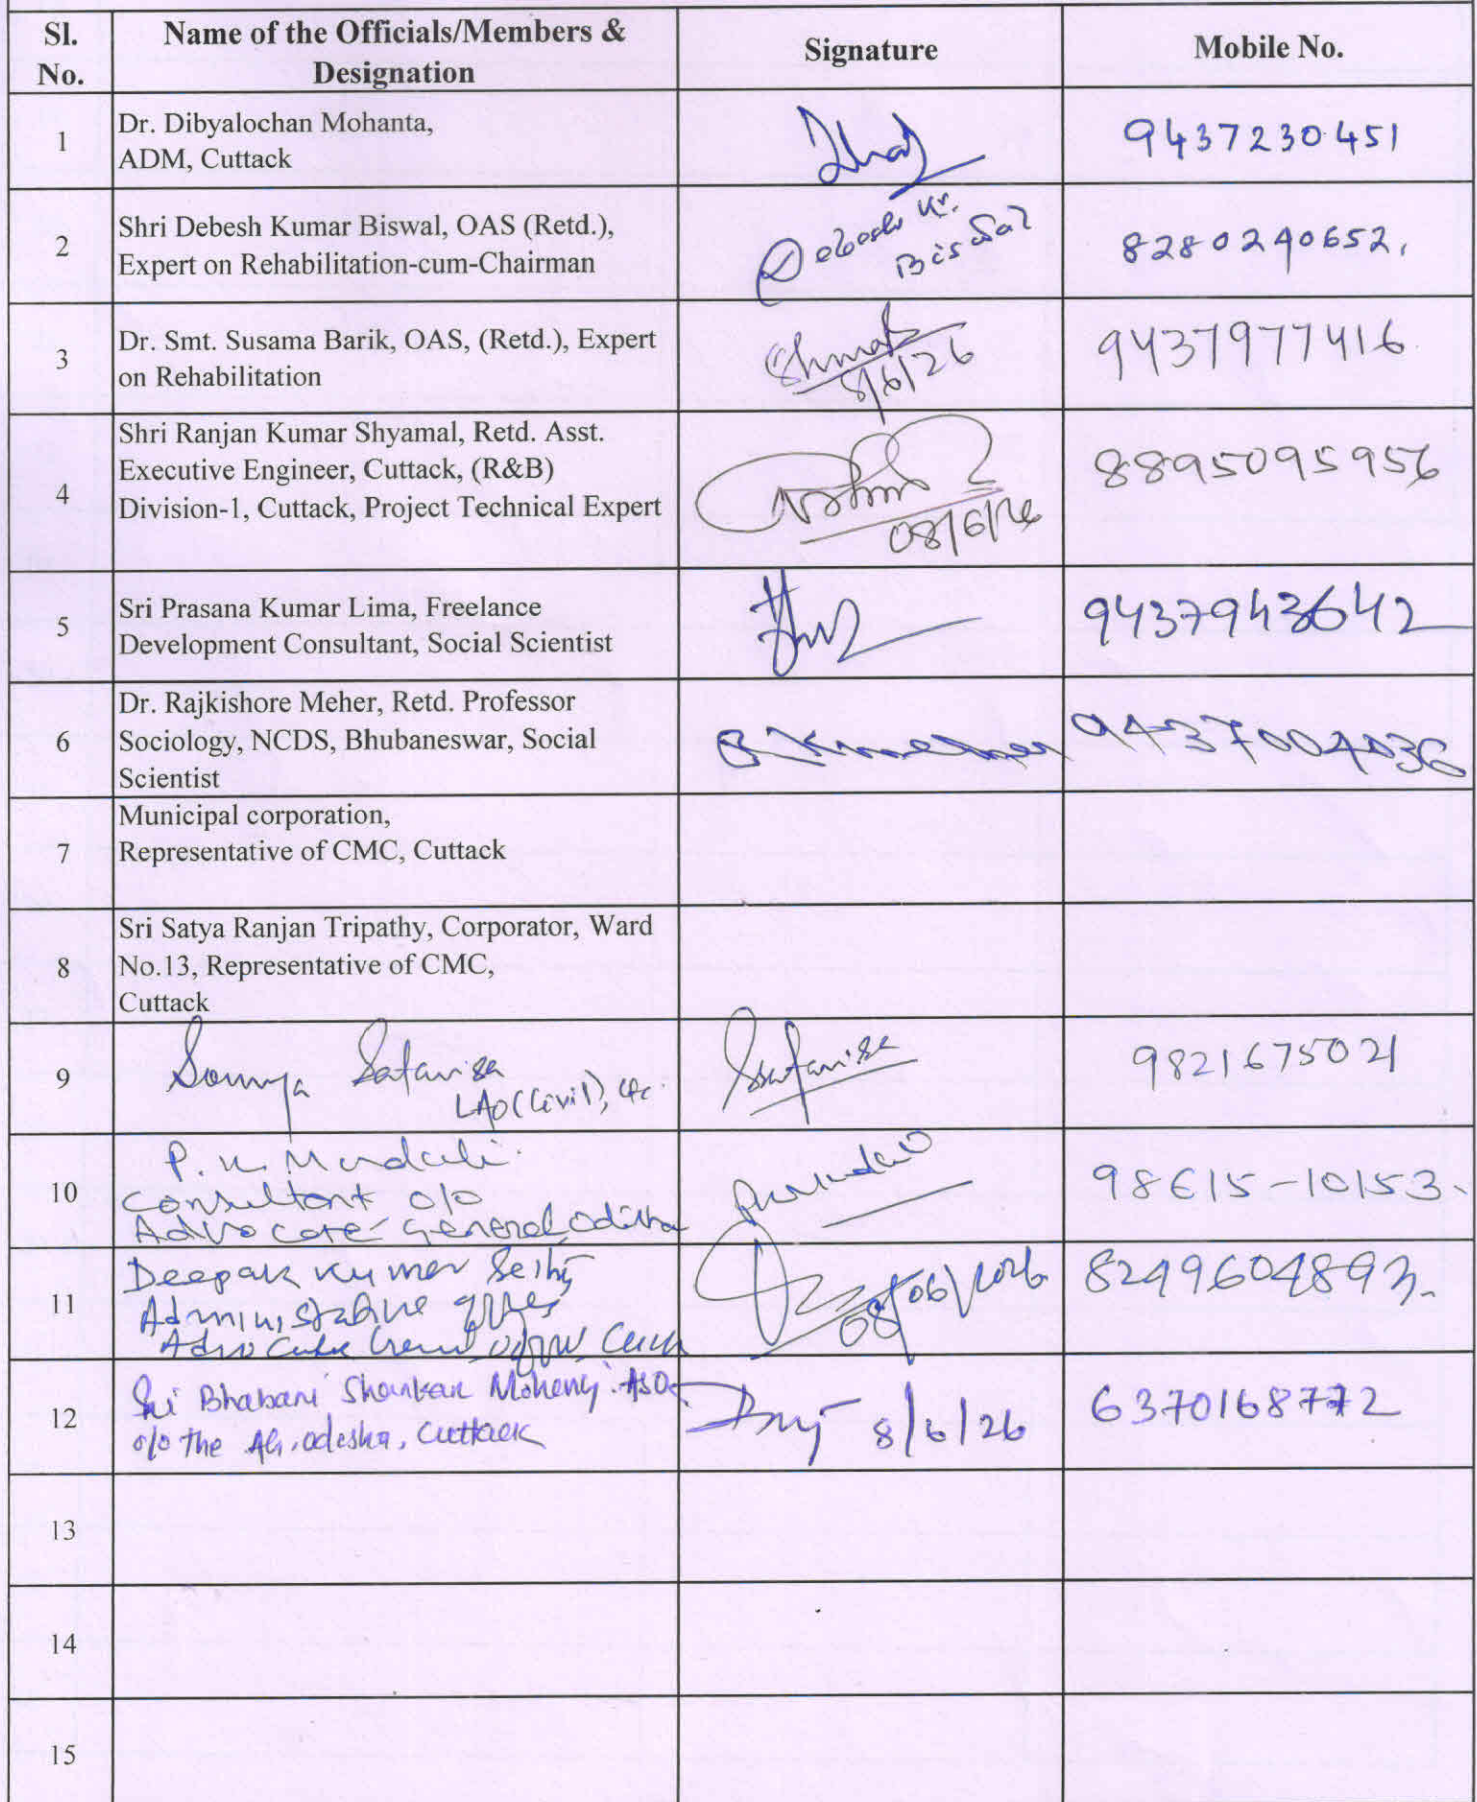 Sl. No.
Name of the Officials/Members &
Designation
Signature
Mobile No.
1
Dr. Dibyalochan Mohanta,
ADM, Cuttack
9437230451
2
Shri Debesh Kumar Biswal, OAS (Retd.),
Expert on Rehabilitation-cum-Chairman
Debesh Kr.
Biswal
8280240652.
3
Dr. Smt. Susama Barik, OAS, (Retd.), Expert
on Rehabilitation
8/6/26
9437977416
4
Shri Ranjan Kumar Shyamal, Retd. Asst.
Executive Engineer, Cuttack, (R&B)
Division-1, Cuttack, Project Technical Expert
08/6/26
8895095956
5
Sri Prasana Kumar Lima, Freelance
Development Consultant, Social Scientist
9437943642
6
Dr. Rajkishore Meher, Retd. Professor
Sociology, NCDS, Bhubaneswar, Social
Scientist
9437004036
7
Municipal corporation,
Representative of CMC, Cuttack
8
Sri Satya Ranjan Tripathy, Corporator, Ward
No.13, Representative of CMC,
Cuttack
9
Soumya Satarisa
LAO (Civil),
9821675021
10
P. K. Munduli
Consultant o/o
Advocate General, Odisha
98615-10153.
11
Deepak Kumar Sethy
Administrative
Advocate
08/06/2026
8249604893.
12
Sri Bhabani Shankar Mohanty. ASO
o/o the AG. Odisha, Cuttack
8/6/26
6370168772
13
14
15